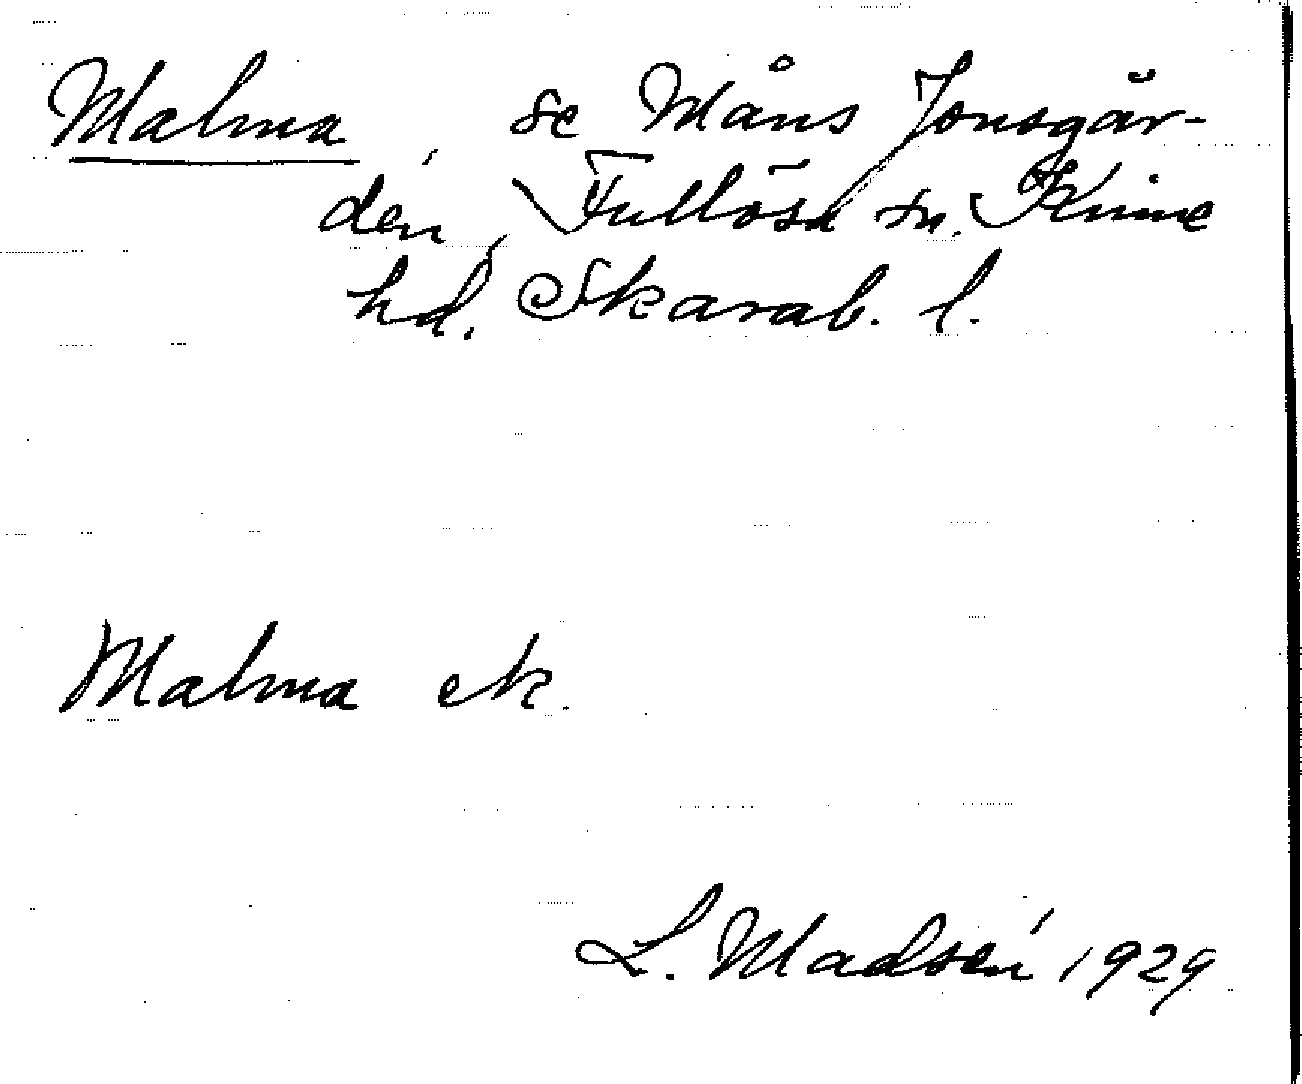 Malma, se Måns Jonsgår-
den, Fullösa sn. Kinne
hd. Skarab. l.
Malma ek.
L. Madsén 1929